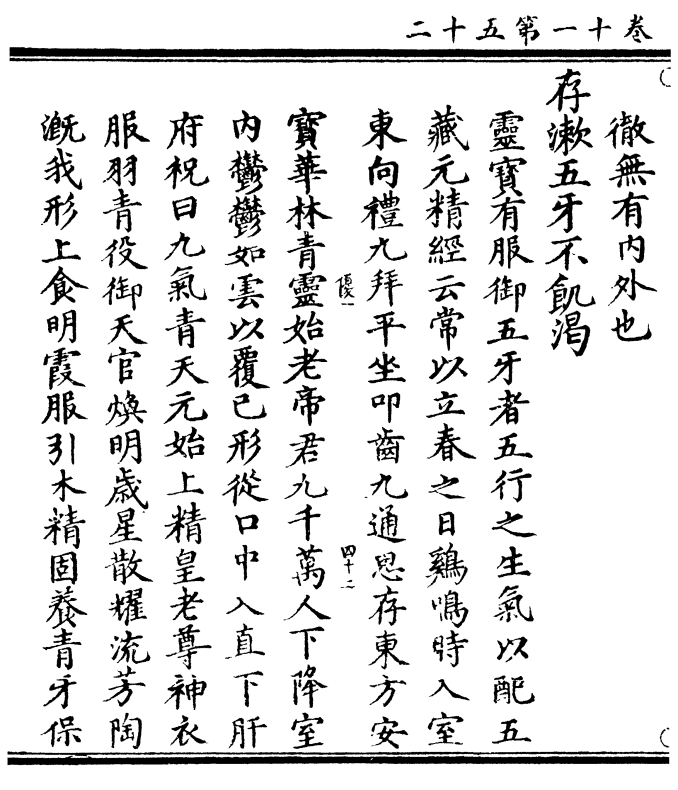 二十五第一十卷
徹無有内外也
存漱五牙不飢渴
靈寶有服御五牙者五行之生氣以配五
藏元精經云常以立春之日鷄鳴時入室
東向禮九拜平坐叩齒九通思存東方安
優一
四十二
寶華林青靈始老帝君九千萬人下降室
内鬱鬱如雲以覆己形從口中入直下肝
府祝曰九氣青天元始上精皇老尊神衣
服羽青役御天官煥明歲星散耀流芳陶
溉我形上食明霞服引木精固養青牙保